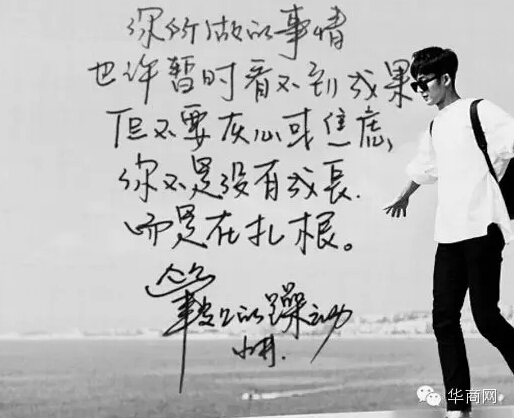 你所做的事情
也许暂时看不到成果
但不要灰心或焦虑,
你不是没有成長.
而是在扎根。
的躁动
华商网